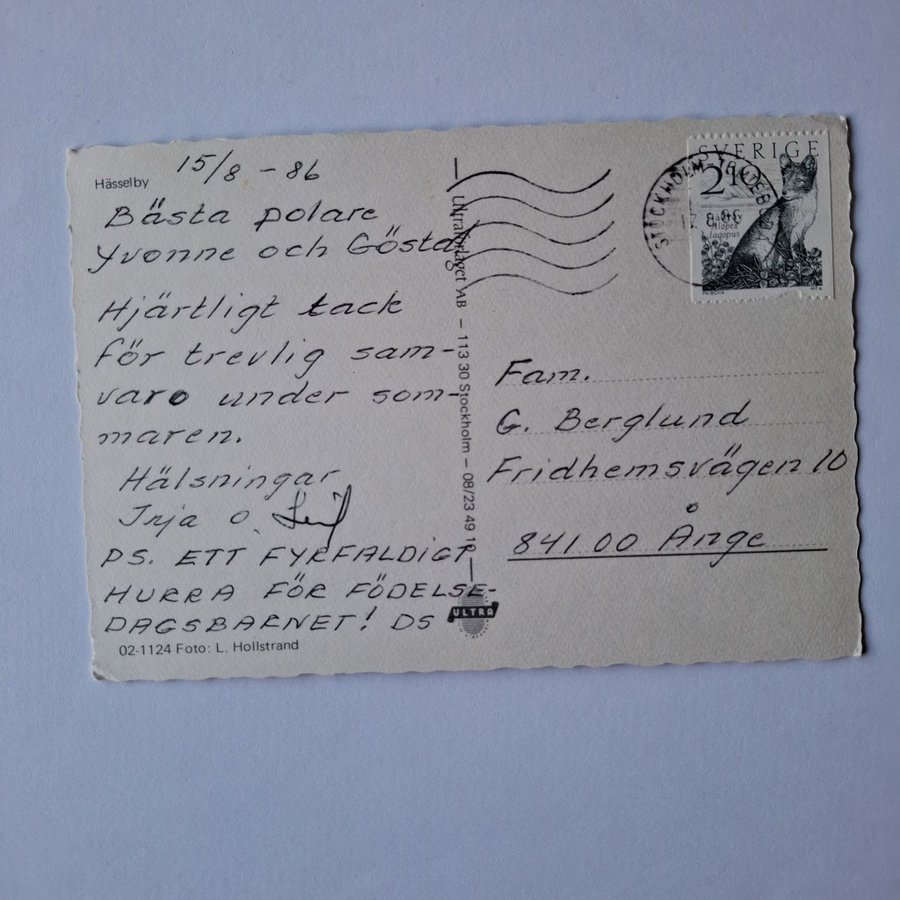 Hässelby
15/8 - 86
Bästa polare
Yvonne och Gösta!
Hjärtligt tack
för trevlig sam-
varo under som-
maren.
Hälsningar
Inja o.
PS. ETT FYRFALDIGT
HURRA FÖR FÖDELSE-
DAGSBARNET! DS
02-1124 Foto: L. Hollstrand
Ultraförlaget AB – 113 30 Stockholm – 08/23 49 10
ULTRA
SVERIGE
210
Alopex
lagopus
STOCKHOLM
17. 8.86
Fam.
G. Berglund
Fridhemsvägen 10
841 00 Ånge